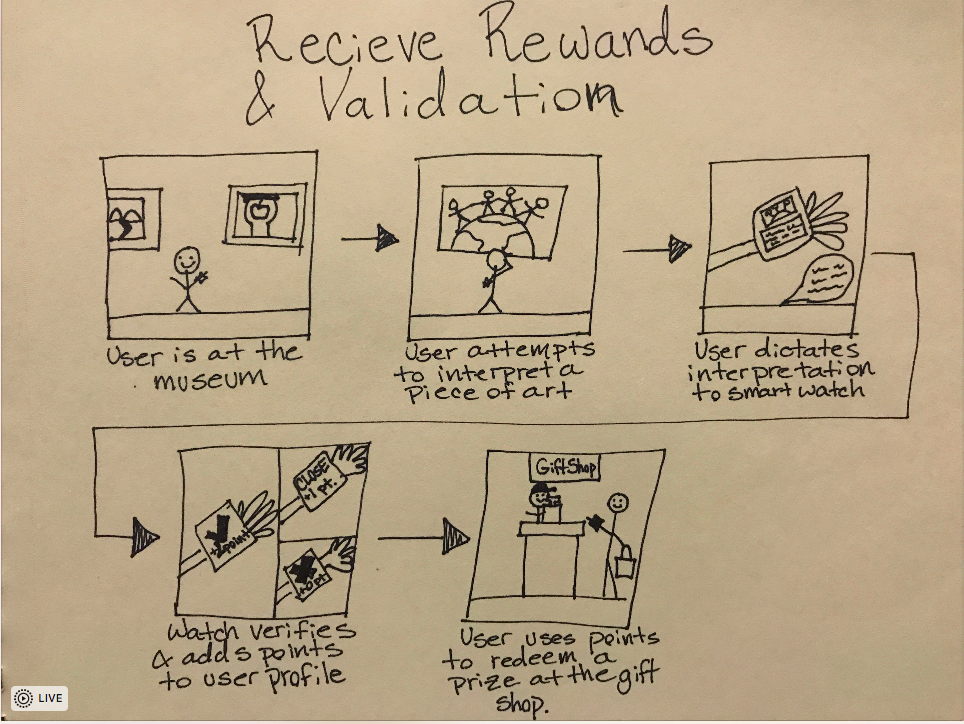 Recieve Rewards
& Validation
User is at the
museum
User attempts
to interpret a
piece of art
User dictates
interpretation
to smart watch
+2 point
CLOSE
+1 pt.
+0 pt
Watch verifies
& adds points
to user profile
Gift Shop
User uses points
to redeem a
prize at the gift
shop.
LIVE